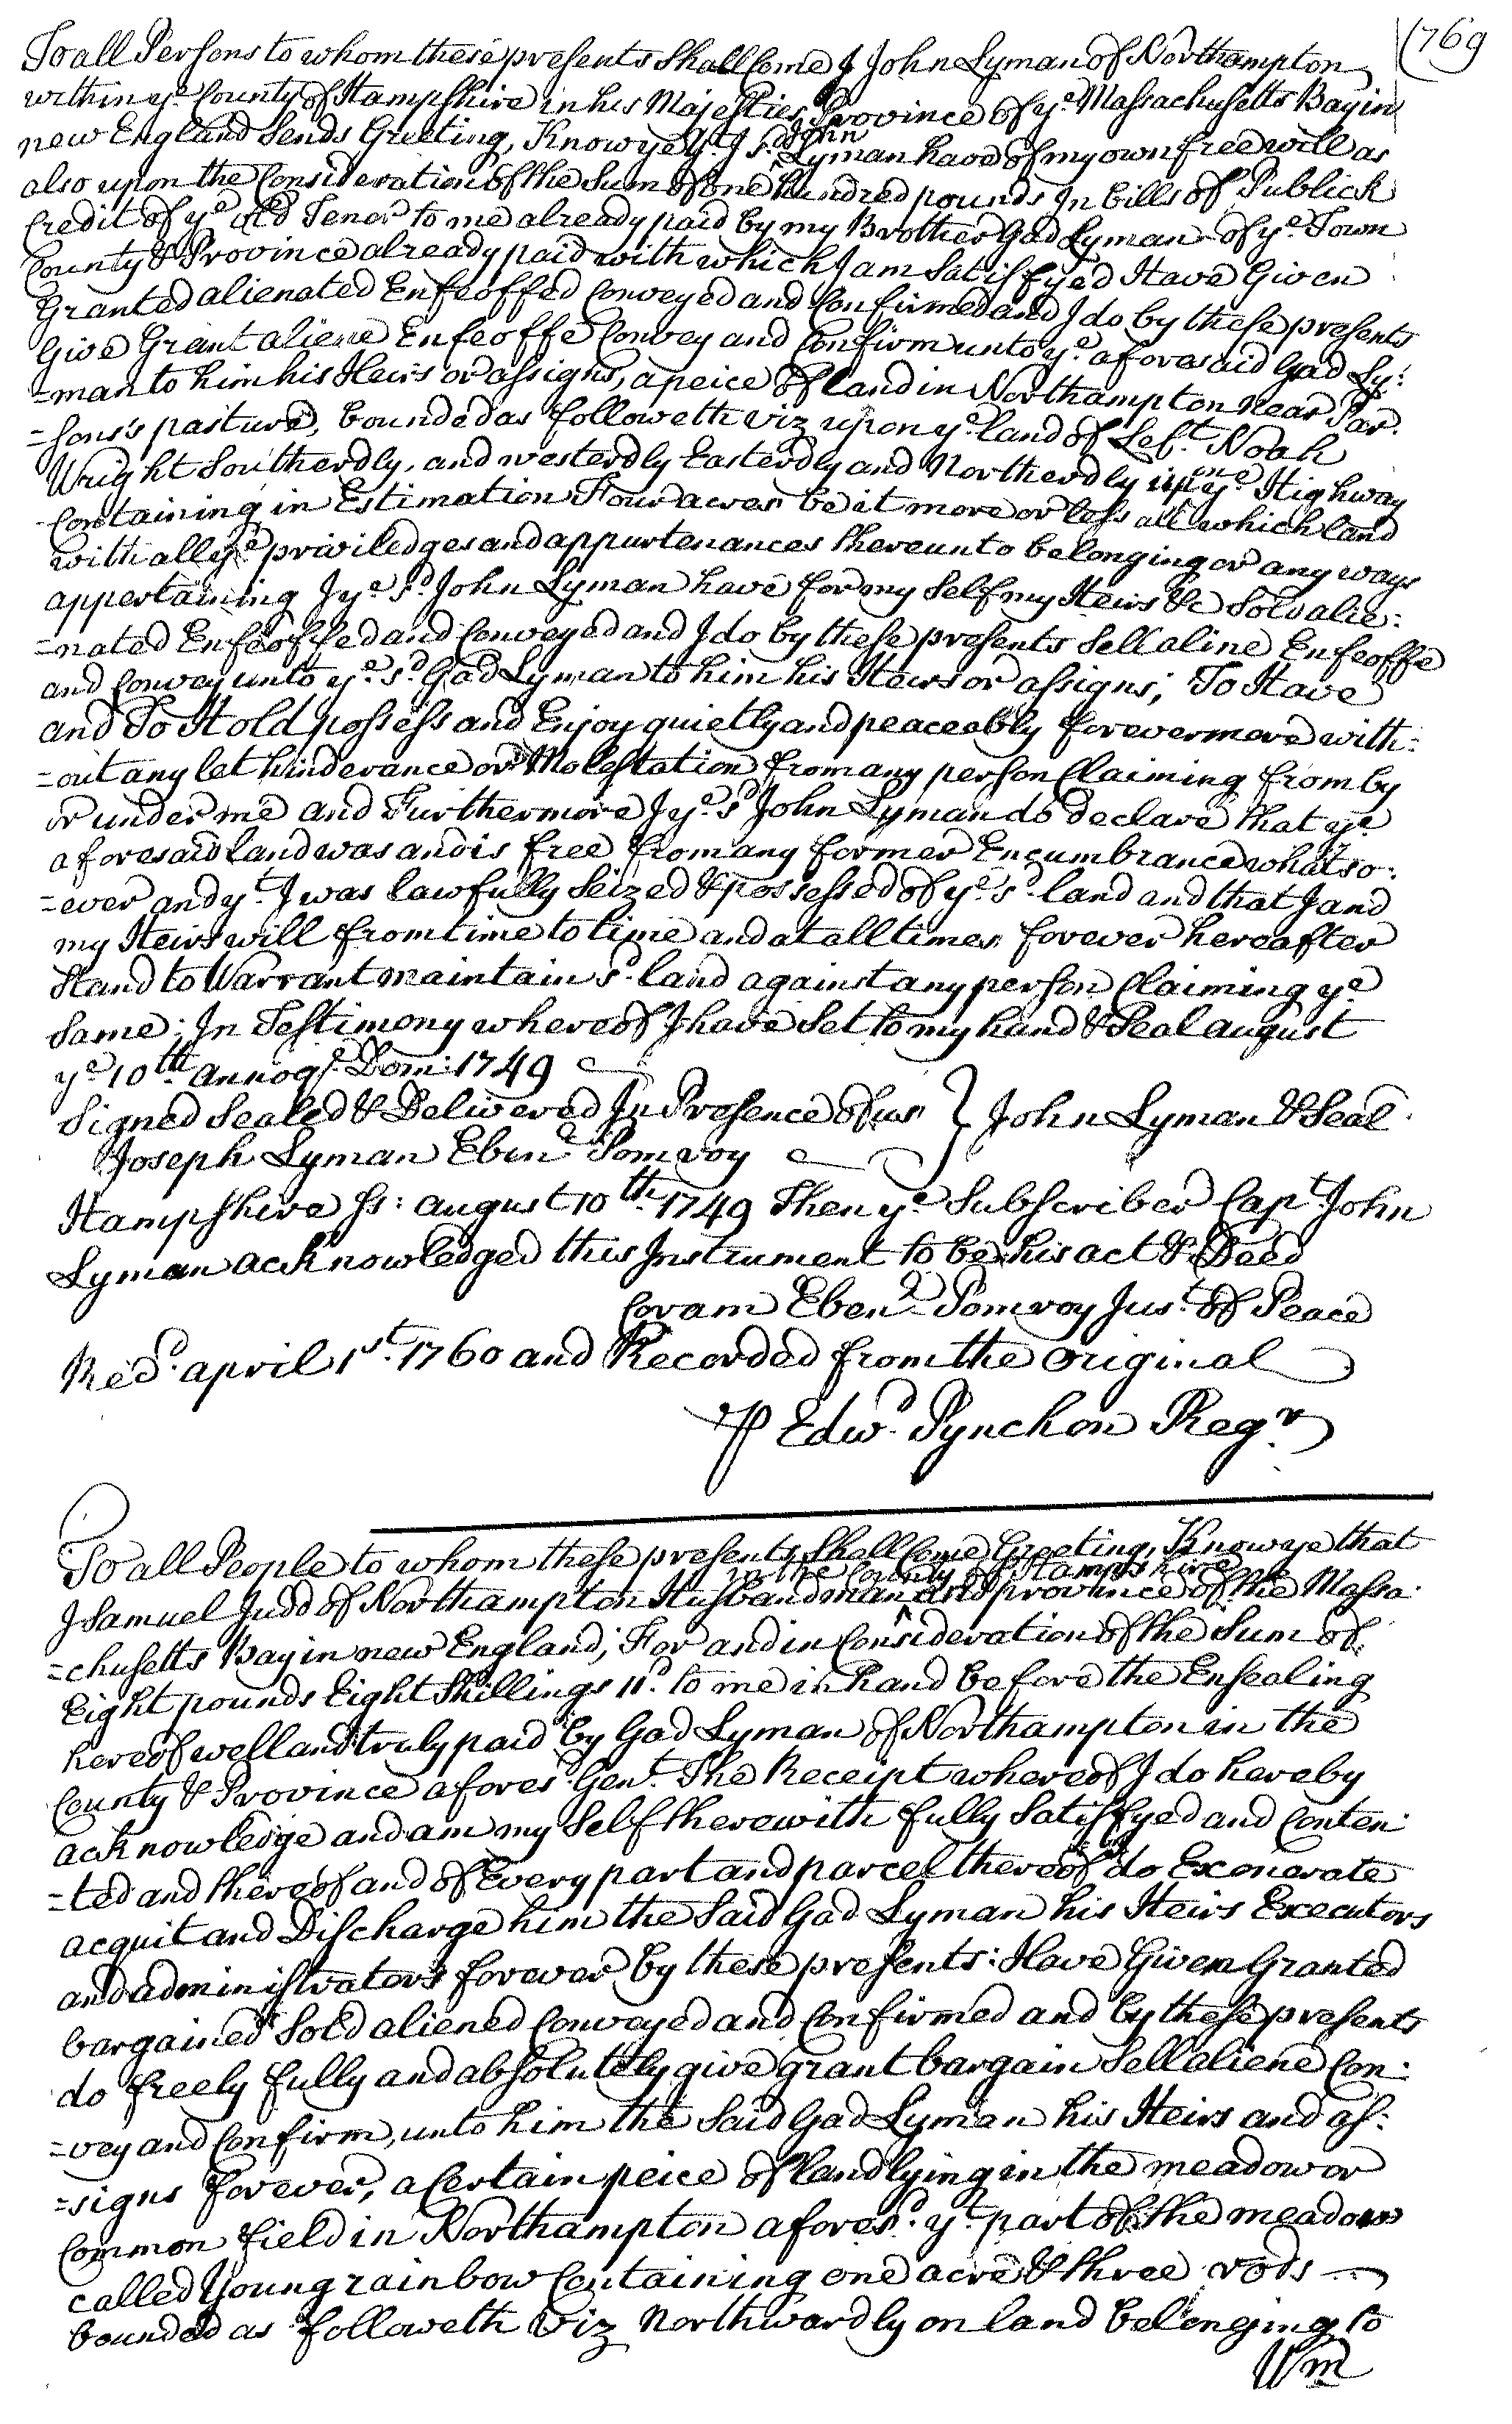 769
To all Persons to whom these presents Shall Come I John Lyman of Northampton
within ye County of Hampshire in his Majesties Province of ye Massachusetts Bay in
new England Sends Greeting, Know ye yt I sd John Lyman have of my own free will as
also upon the Consideration of the Sum of one hundred pounds In bills of Publick
Credit of ye old Tenor to me already paid by my Brother Gad Lyman of ye Town
County & Province already paid with which I am Satisfyed Have Given
Granted alienated Enfeoffed Conveyed and Confirmed and I do by these presents
Give Grant aliene Enfeoffe Convey and Confirm unto ye aforesaid Gad Ly:
=man to him his Heirs or assigns, a peice of land in Northampton near Par:
=sons's pasture, bounded as followeth viz upon ye land of Left. Noah
Wright Southerdly, and westerdly Easterdly and Northerdly upon ye Highway
Containing in Estimation Four acres be it more or less all which land
with all ye priviledges and appurtenances thereunto belonging or any ways
appertaining I ye sd John Lyman have for my Self my Heirs &c Sold alie:
=nated Enfeoffed and Conveyed and I do by these presents Sell aline Enfeoffe
and Convey unto ye sd Gad Lyman to him his Heirs or assigns; To Have
and To Hold possess and Enjoy quietly and peaceably forevermore with:
=out any let hinderance or Molestation from any person Claiming from by
or under me and Furthermore I ye sd John Lyman do declare that ye
aforesaid land was and is free from any former Encumbrance whatso:
=ever and yt I was lawfully Seized & possessed of ye sd land and that I and
my Heirs will from time to time and at all times forever hereafter
Stand to Warrant maintain sd land against any person Claiming ye
Same; In Testimony whereof I have Set to my hand & Seal august
ye 10th annoqe Dom: 1749
Signed Sealed & Delivered In Presence of us } John Lyman & Seal
Joseph Lyman Ebenr Pomroy
Hampshire Ss: august 10th 1749 Then ye Subscriber Capt John
Lyman acknowledged this Instrument to be his act & Deed
Coram Ebenr Pomroy Just of Peace
Recd april 1st 1760 and Recorded from the original
P Edwd Pynchon Regr
To all People to whom these presents Shall Come Greeting, Know ye that
in the County of Hampshire
I Samuel Judd of Northampton Husbandman ^ and province of the Massa:
=chusetts Bay in new England; For and in Consideration of the Sum of
Eight pounds Eight Shillings 11d to me in hand before the Ensealing
hereof well and truly paid by Gad Lyman of Northampton in the
County & Province aforesd Gent. The Receipt whereof I do hereby
acknowledge and am my Self therewith fully Satisfyed and Conten:
=ted and thereof and of Every part and parcel thereof do Exonerate
acquit and Discharge him the Said Gad Lyman his Heirs Executors
and administrators forever by these presents: Have Given Granted
bargained Sold aliened Conveyed and Confirmed and by these presents
do freely fully and absolutely give grant bargain Sell aliene Con:
=vey and Confirm, unto him the Said Gad Lyman his Heirs and as:
=signs forever, a Certain peice of land lying in the meadow or
Common field in Northampton aforesd yt part of the meadow
called Young rainbow Containing one acre & three rods
bounded as followeth Viz Northwardly on land belonging to
Wm